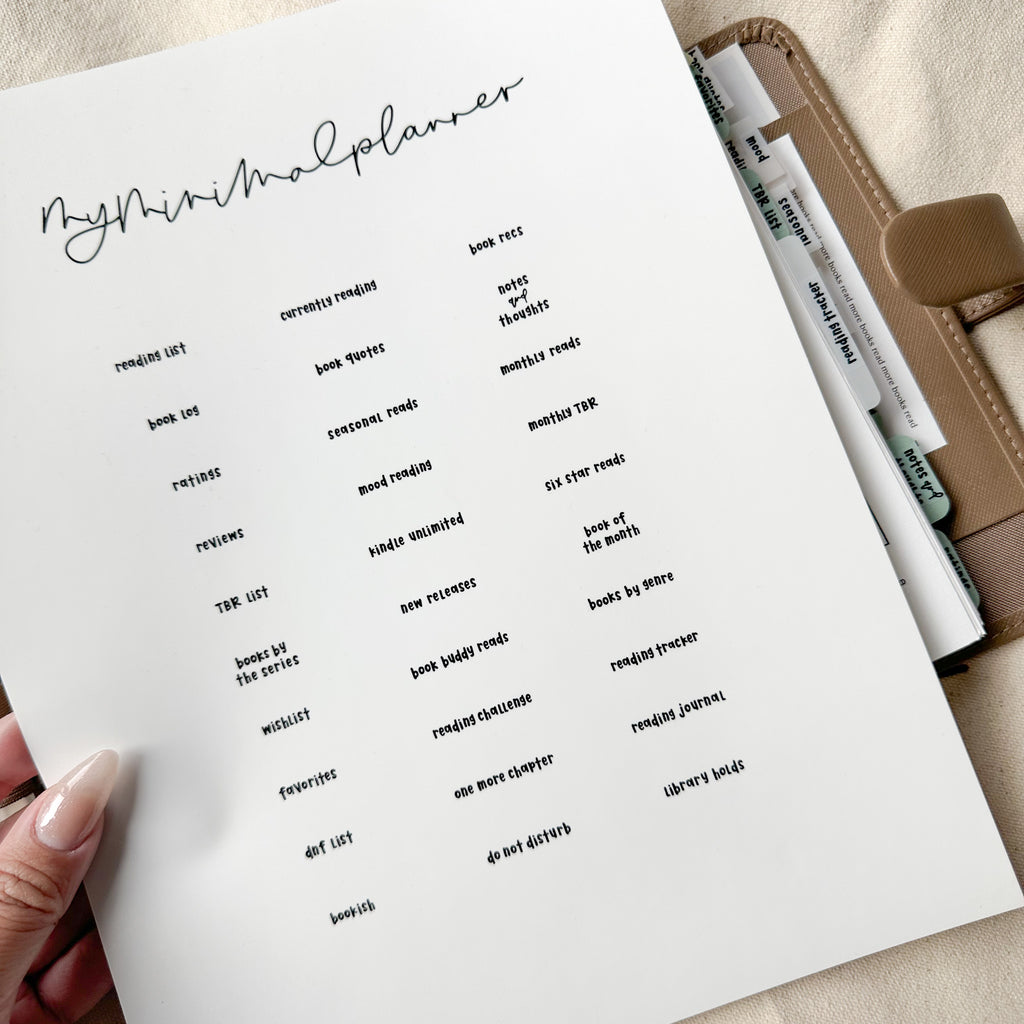 myminimalplanner
reading list
book log
ratings
reviews
TBR list
books by
the series
wishlist
favorites
dnf list
bookish
currently reading
book quotes
seasonal reads
mood reading
kindle unlimited
new releases
book buddy reads
reading challenge
one more chapter
do not disturb
book recs
notes
and
thoughts
monthly reads
monthly TBR
six star reads
book of
the month
books by genre
reading tracker
reading journal
library holds
favorites
mood
TBR list
seasonal
reading tracker
more books read more books read more books read
notes and